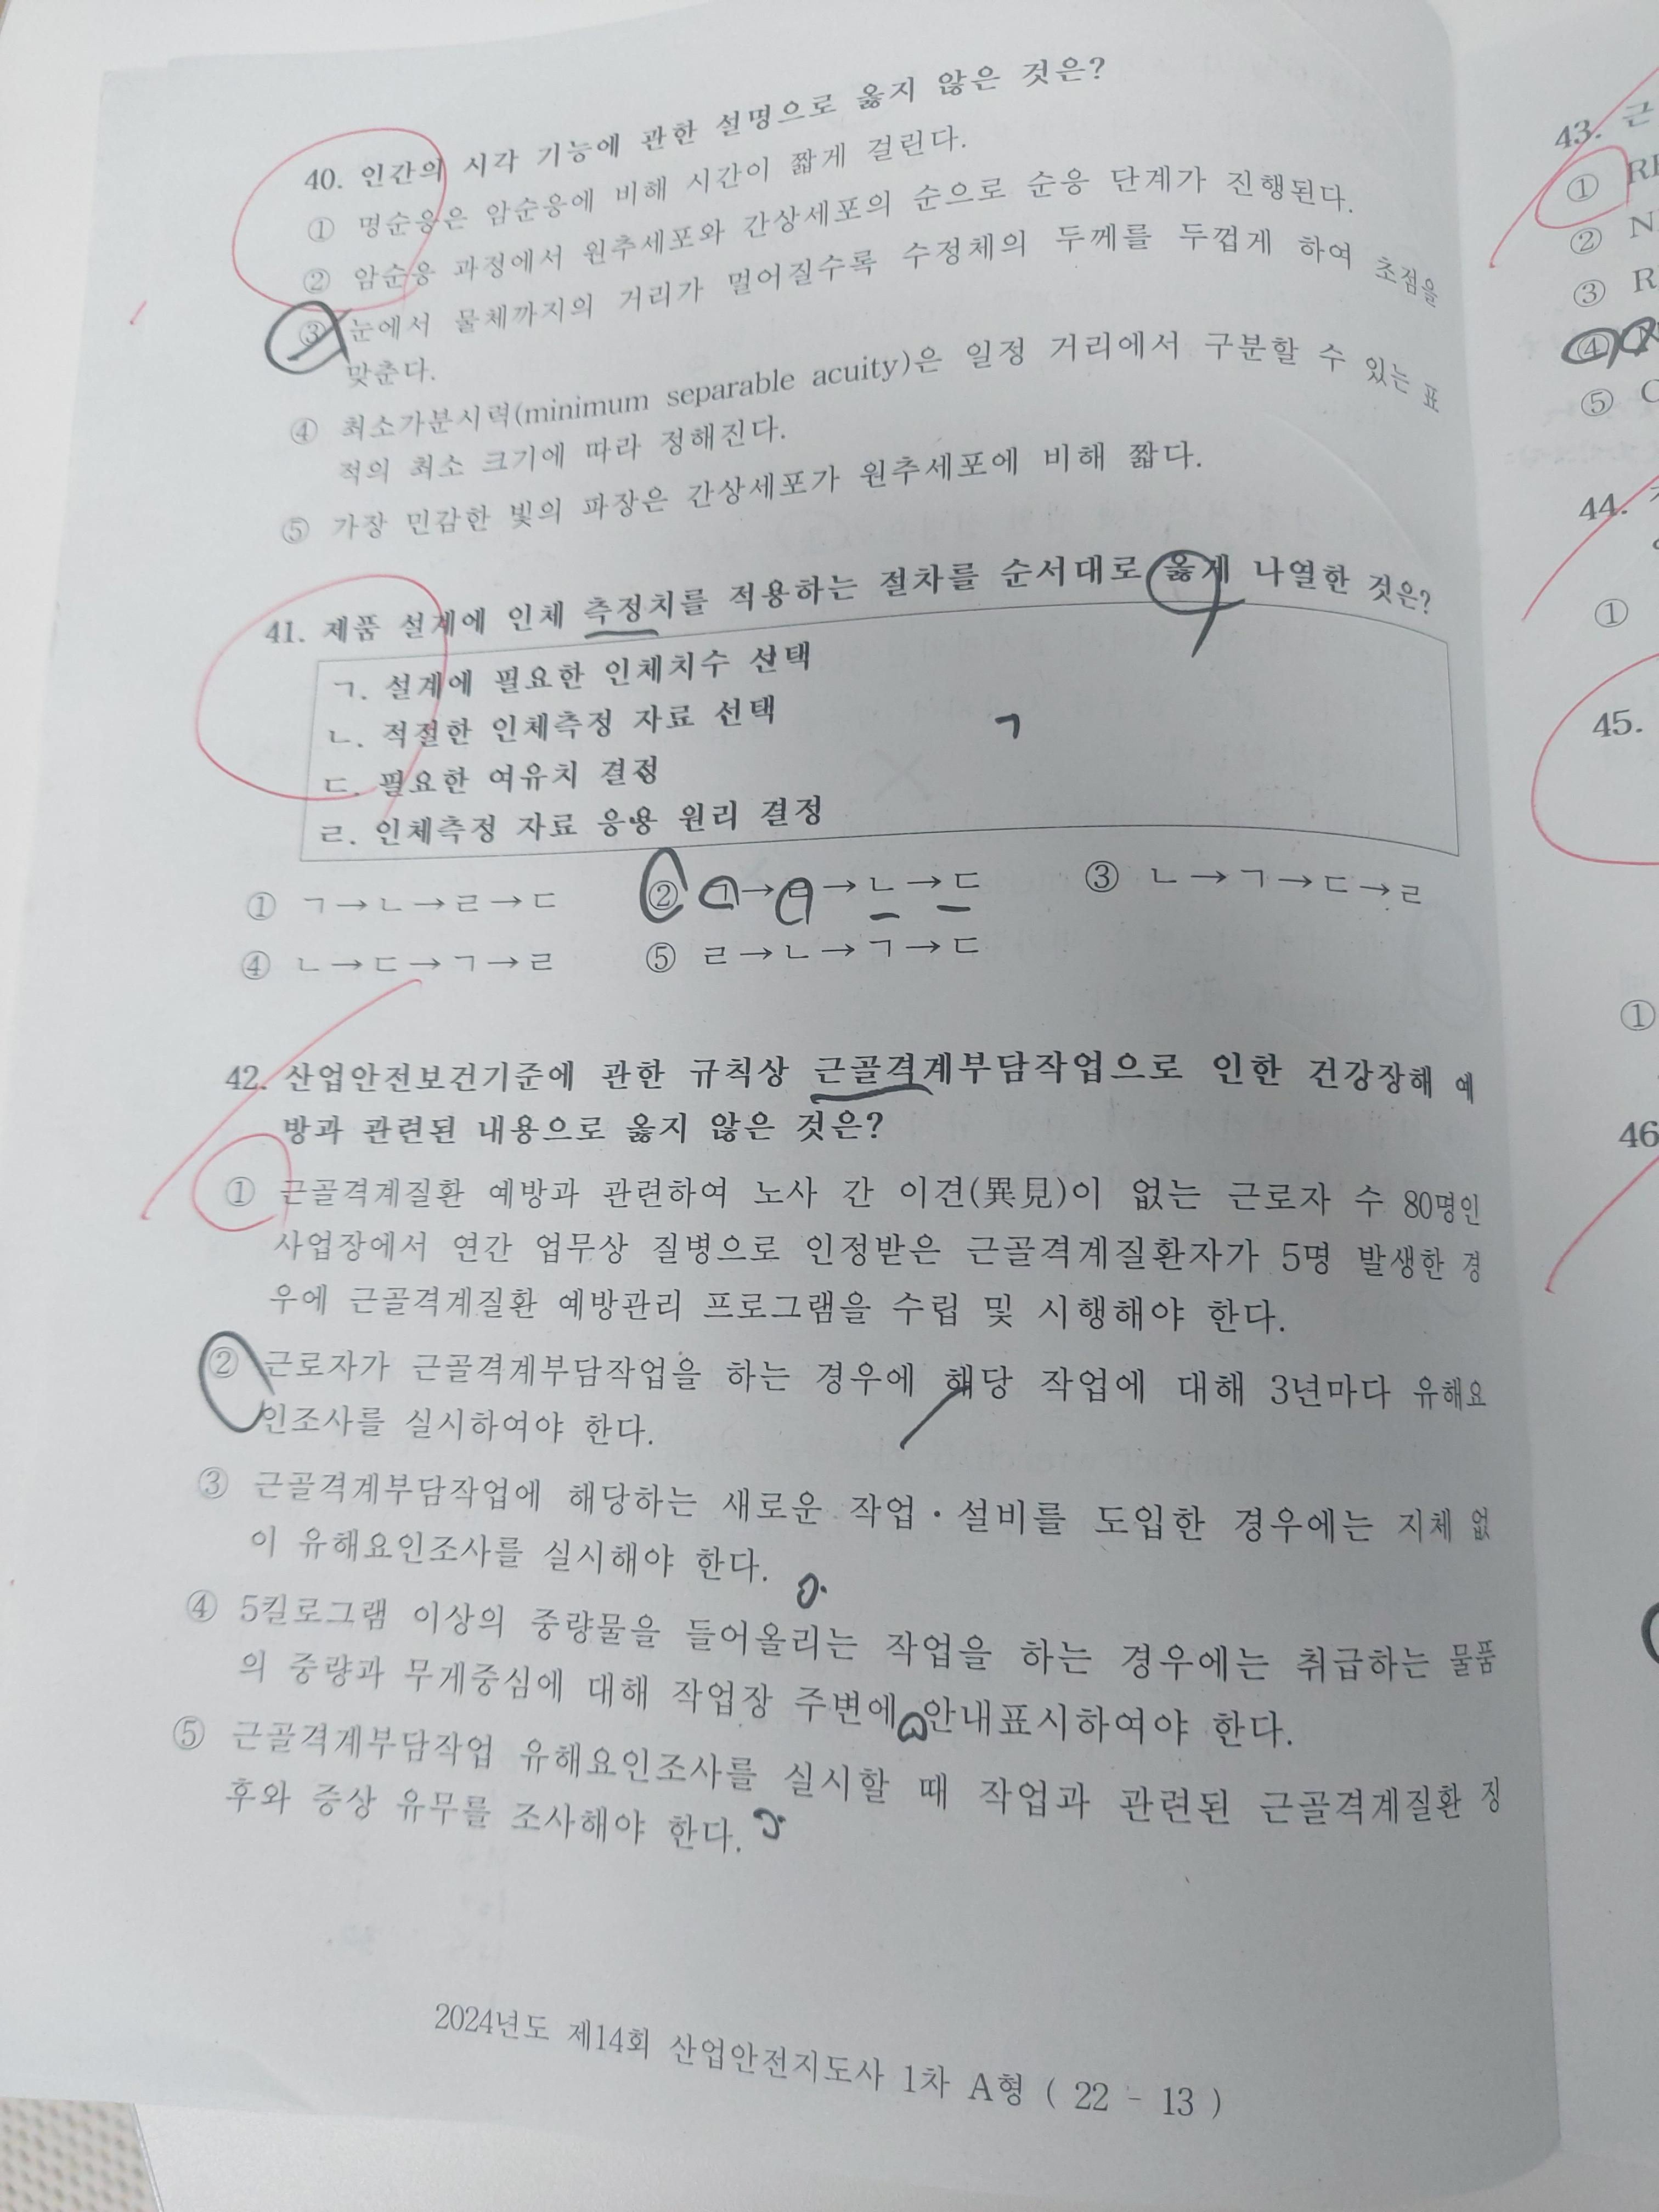 40. 인간의 시각 기능에 관한 설명으로 옳지 않은 것은?
① 명순응은 암순응에 비해 시간이 짧게 걸린다.
② 암순응 과정에서 원추세포와 간상세포의 순으로 순응 단계가 진행된다.
③ 눈에서 물체까지의 거리가 멀어질수록 수정체의 두께를 두껍게 하여 초점을
맞춘다.
④ 최소가분시력(minimum separable acuity)은 일정 거리에서 구분할 수 있는 표
적의 최소 크기에 따라 정해진다.
⑤ 가장 민감한 빛의 파장은 간상세포가 원추세포에 비해 짧다.
41. 제품 설계에 인체 측정치를 적용하는 절차를 순서대로 옳게 나열한 것은?
ㄱ. 설계에 필요한 인체치수 선택
ㄴ. 적절한 인체측정 자료 선택
ㄱ
ㄷ. 필요한 여유치 결정
ㄹ. 인체측정 자료 응용 원리 결정
① ㄱ→ㄴ→ㄹ→ㄷ ② ㄱ→ㄹ→ㄴ→ㄷ ③ ㄴ→ㄱ→ㄷ→ㄹ
④ ㄴ→ㄷ→ㄱ→ㄹ ⑤ ㄹ→ㄴ→ㄱ→ㄷ
42. 산업안전보건기준에 관한 규칙상 근골격계부담작업으로 인한 건강장해 예
방과 관련된 내용으로 옳지 않은 것은?
① 근골격계질환 예방과 관련하여 노사 간 이견(異見)이 없는 근로자 수 80명인
사업장에서 연간 업무상 질병으로 인정받은 근골격계질환자가 5명 발생한 경
우에 근골격계질환 예방관리 프로그램을 수립 및 시행해야 한다.
② 근로자가 근골격계부담작업을 하는 경우에 해당 작업에 대해 3년마다 유해요
인조사를 실시하여야 한다.
③ 근골격계부담작업에 해당하는 새로운 작업·설비를 도입한 경우에는 지체 없
이 유해요인조사를 실시해야 한다.
④ 5킬로그램 이상의 중량물을 들어올리는 작업을 하는 경우에는 취급하는 물품
의 중량과 무게중심에 대해 작업장 주변에 안내표시하여야 한다.
⑤ 근골격계부담작업 유해요인조사를 실시할 때 작업과 관련된 근골격계질환 징
후와 증상 유무를 조사해야 한다.
2024년도 제14회 산업안전지도사 1차 A형 ( 22 - 13 )
43. 근
①
②
③
④
⑤
44.
①
45.
①
46